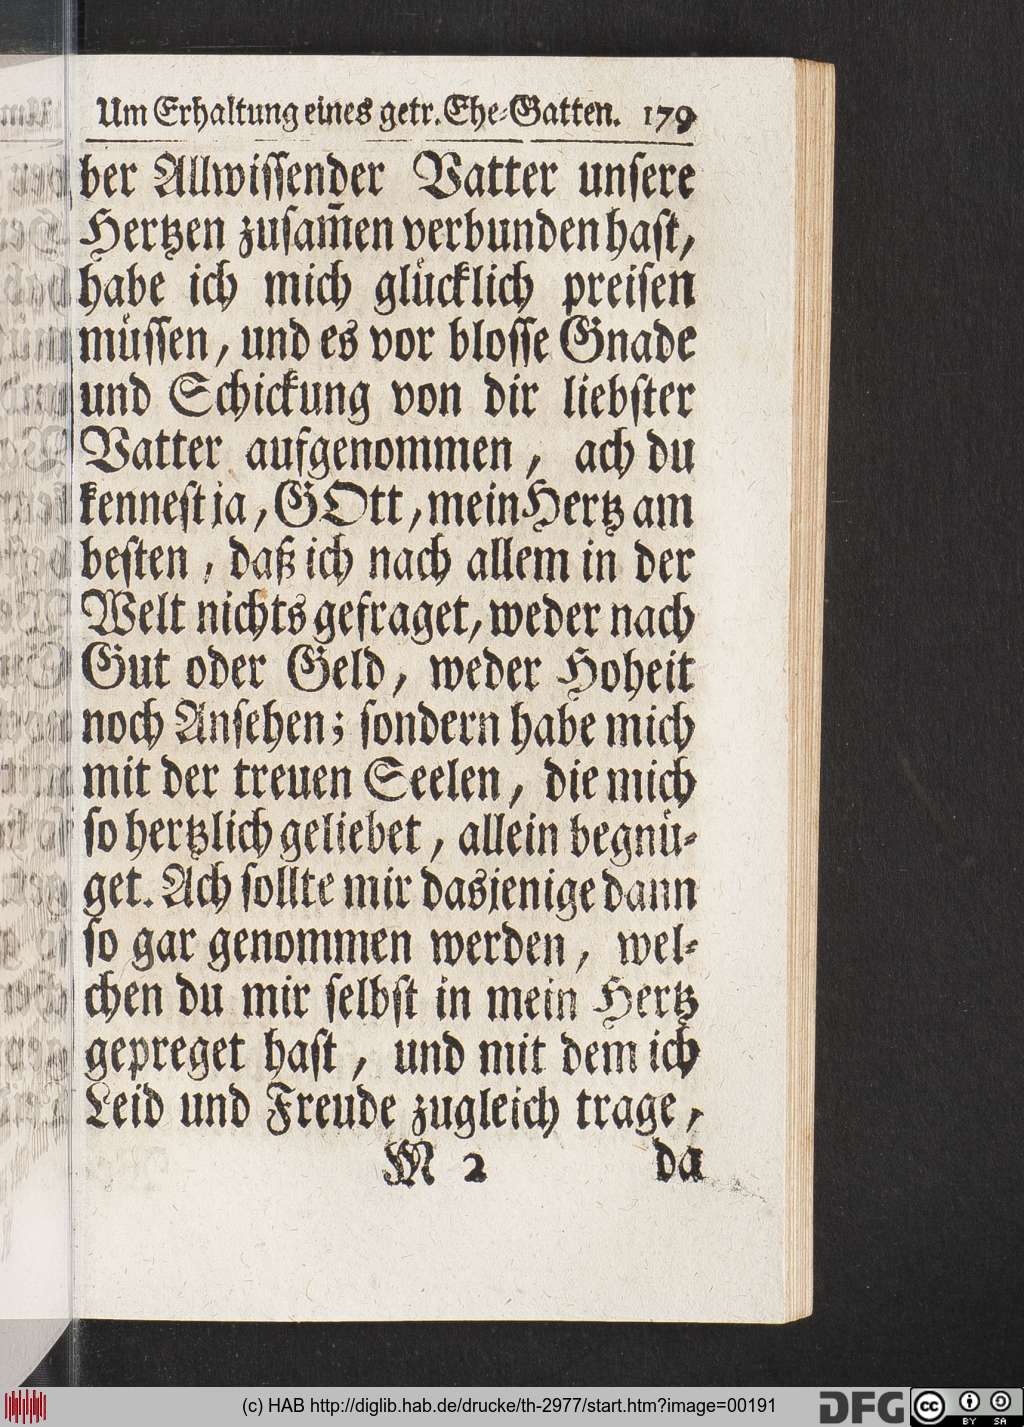 Um Erhaltung eines getr. Ehe-Gatten. 179
ber Allwissender Vatter unsere
Hertzen zusam̄en verbunden hast,
habe ich mich glücklich preisen
müssen, und es vor blosse Gnade
und Schickung von dir liebster
Vatter aufgenommen, ach du
kennest ja, GOtt, mein Hertz am
besten, daß ich nach allem in der
Welt nichts gefraget, weder nach
Gut oder Geld, weder Hoheit
noch Ansehen; sondern habe mich
mit der treuen Seelen, die mich
so hertzlich geliebet, allein begnü-
get. Ach sollte mir dasjenige dann
so gar genommen werden, wel-
chen du mir selbst in mein Hertz
gepreget hast, und mit dem ich
Leid und Freude zugleich trage,
M 2 da
(c) HAB http://diglib.hab.de/drucke/th-2977/start.htm?image=00191
DFG
cc BY SA